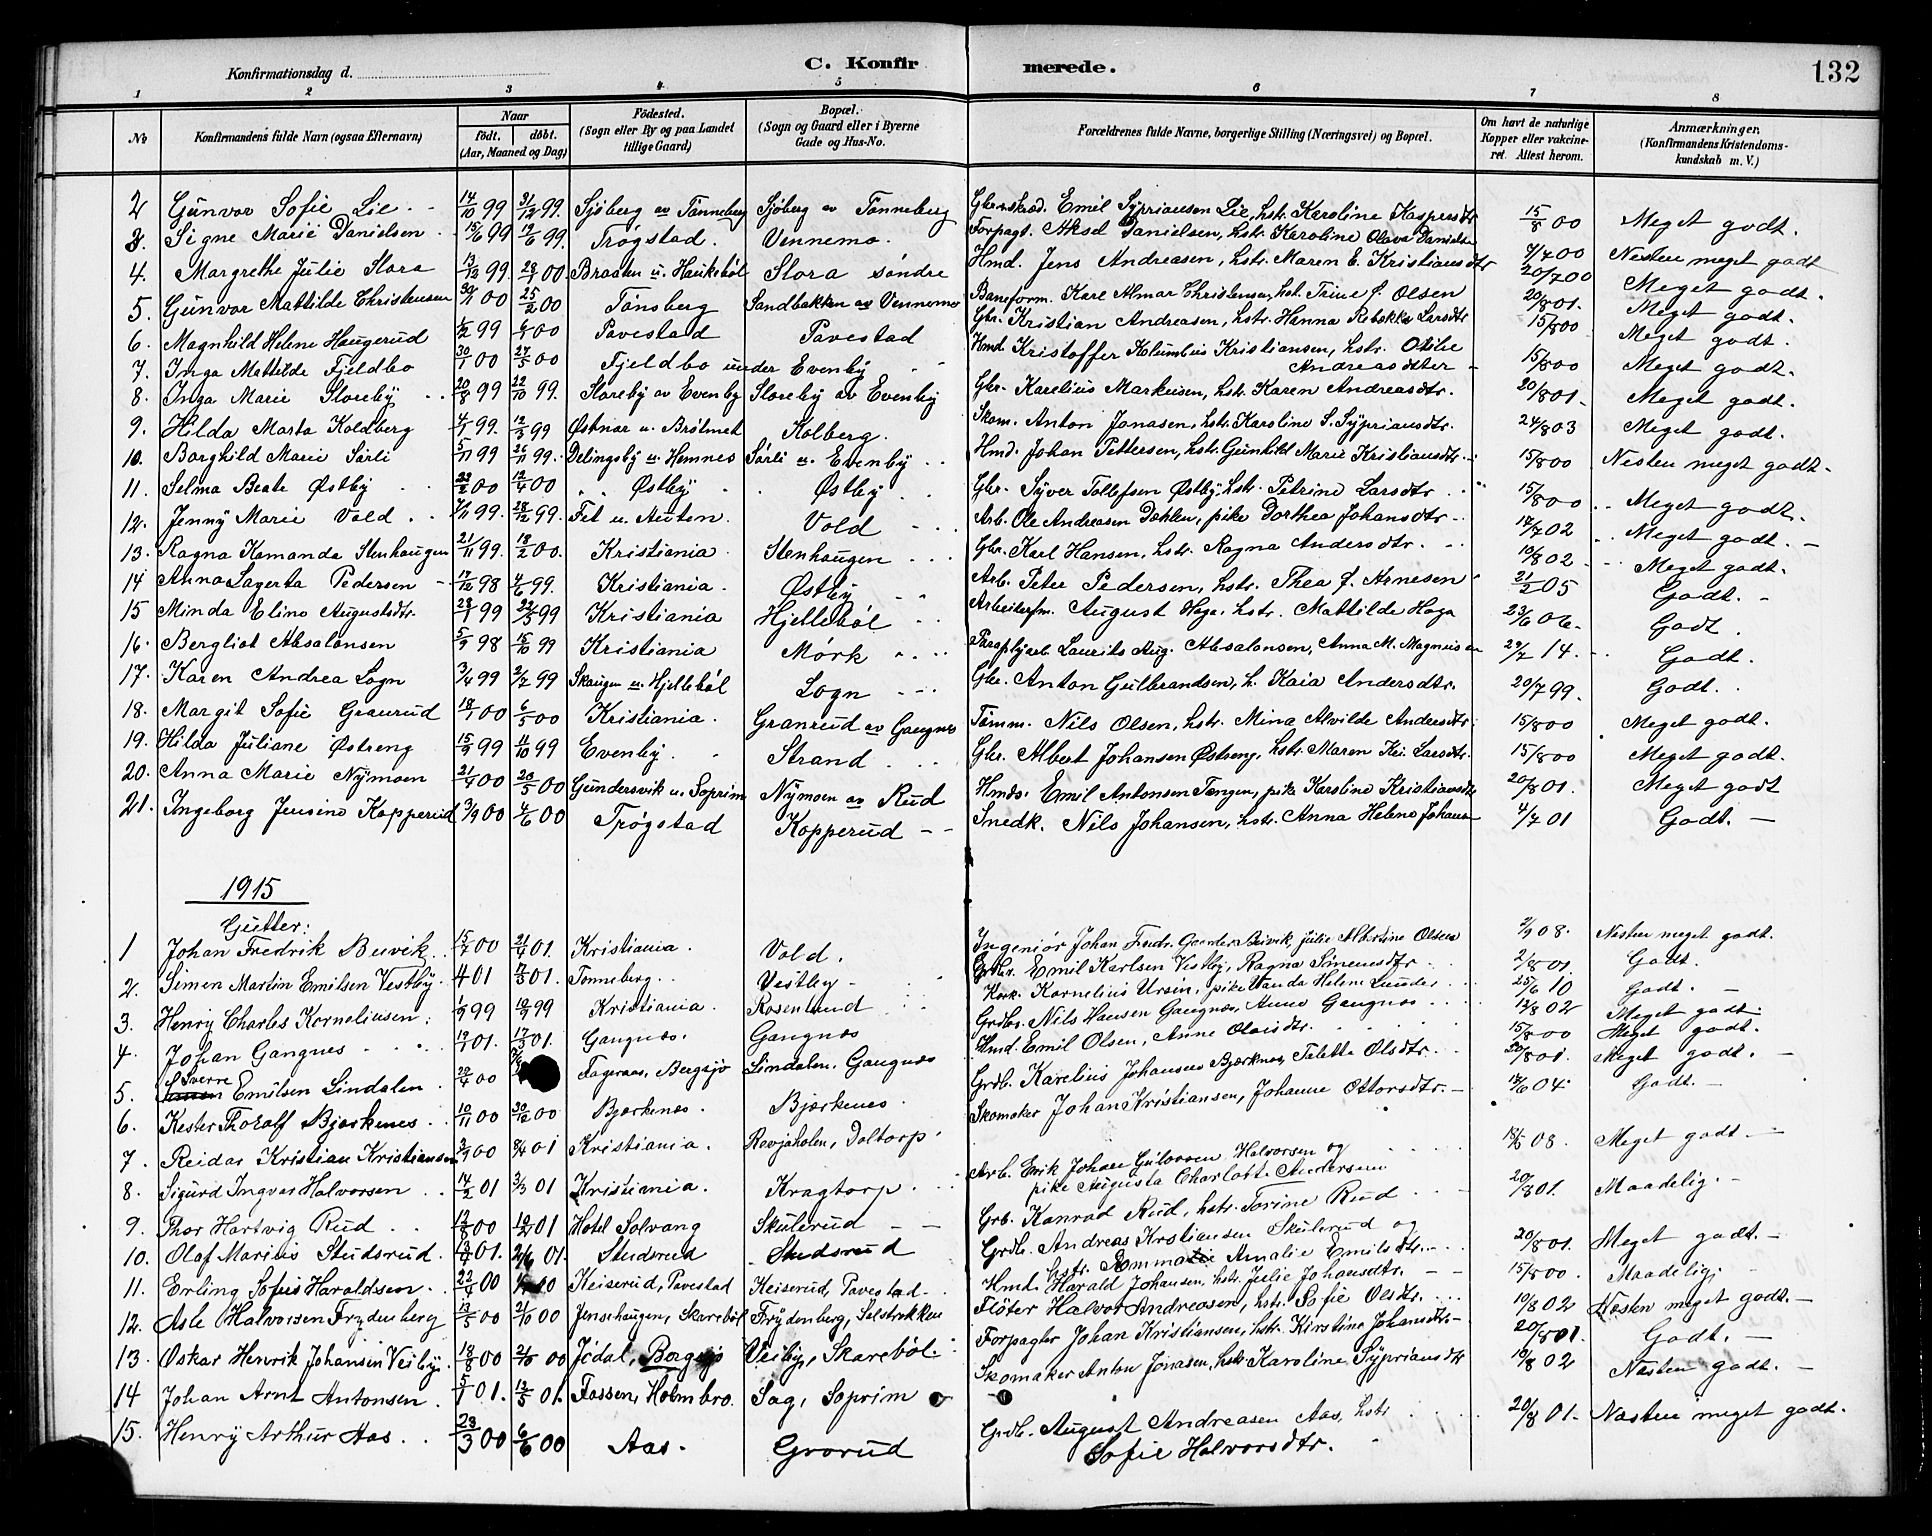 Konfirmationsdag d.
C. Konfirmerede.
132
1 2 3 4 5 6 7 8
No
Konfirmandens fulde Navn (ogsaa Efternavn)
Naar født. døbt. (Aar, Maaned og Dag)
Fødested. (Sogn eller By og paa Landet tillige Gaard)
Bopæl. (Sogn og Gaard eller i Byerne Gade og Hus-No.
Forældrenes fulde Navne, borgerlige Stilling (Næringsvei) og Bopæl.
Om havt de naturlige Kopper eller vakcineret. Attest herom.
Anmærkninger. (Konfirmandens Kristendomskundskab m. V.)
2 Gunvor Sofie Lie 14/10 99 31/12 99. Sjöberg av Tönneberg Sjöberg av Tönneberg Emil Sypriansen Lie, hstr. Karoline Kaspersdtr 15/8 00 Meget godt.
3. Signe Marie Danielsen 15/6 99 Trögstad. Vennemo. Forpagt. Aksel Danielsen, hstr. Karoline Olava Danielse Nesten meget godt
4. Margrethe Julie Slora 13/12 99. 28/1 00 Braaten u. Haukebøl Slora søndre Hmd. Jens Andreasen, hstr. Maren E. Kristiansdtr 20/7 00 Meget godt.
5. Gunvor Mattilde Christensen 30/11 00 25/2 00 Tønsberg Sandbakken av Vennemo Baneform. Karl Almar Christensen, hst. Trine J. Olsen 20/8 01. Meget godt.
6. Magnhild Helene Haugerud Pavestad Pavestad Gbr. Kristian Andreasen, hstr. Hanna Rebekka Larsdtr 15/8 00 Meget godt.
7. Inga Mattilde Fjeldbo 30/1 00 24/5 00 Fjeldbo under Evenby Hmd. Kristoffer Kolumbus Kristiansen, hstr. Otilie Andreasdtter 15/8 00 Meget godt.
8. Inga Marie Storeby 20/8 99 22/10 99. Storeby av Evenby Storeby av Evenby Gbr. Karelius Markusen, hstr. Karen Andreasdtr. 20/8 01 Meget godt.
9. Hilda Marta Koldberg 4/1 99. 12/3 99 Østnar u. Brötmet Kolberg. Skom. Anton Jonasen, hstr. Karoline S. Sypriansdtr. 24/8 03 Meget godt.
10. Borghild Marie Sørli 5/11 99 26/11 99. Delingsby u. Hemnes Sørli u. Evenby Hmd. Johan Pettersen, hstr. Gunhild Marie Kristiansdtr. 15/8 00 Nesten meget godt.
11. Selma Beate Østby 22/2 00 12/4 00 Østby Østby Gbr. Syver Tollefsen Østby, hstr. Petrine Larsdtr 15/8 00 Meget godt.
12. Jenny Marie Vold 7/11 99. 28/12 99. Fet u. Auton. Vold Arb. Ole Andreasen Dahlen, pike Dorthea Johansdtr 14/7 02 Meget godt.
13. Ragna Kamanda Stenhaugen 21/11 99. 18/2 00. Kristiania. Stenhaugen Gbr. Karl Hansen, hstr. Ragna Andersdtr. 10/8 02 Meget godt.
14 Anna Lagerta Pedersen 17/12 98 4/6 99. Kristiania. Østby Arb. Peter Pedersen, hstr. Thea J. Arnesen 21/2 05 Godt.
15 Minda Eline Augustsdtr. 28/1 99 22/5 99 Kristiania Hjellebøl Arbeiderfm. August Haga, hstr. Mattilde Haga 23/6 06. Godt.
16. Bergliot Absalonsen 5/9 98 15/10 99 Kristiania Mørk Laurits Aug. Absalonsen, Anna M. Magnusen 29/7 14. Godt.
17. Karen Andrea Logn 3/4 99 2/7 99 Skaugen u. Hjellebøl Logn Gbr. Anton Gulbrandsen, h. Kaia Andersdtr. 20/7 99 Godt.
18. Margit Sofie Granrud 18/1 00 6/5 00 Kristiania. Granrud av Gangnes Tømm. Nils Olsen, hstr. Mina Alvilde Andersdtr. 15/8 00 Meget godt.
19. Hilda Juliane Østreng 15/9 99 11/10 99 Evenby. Strand Gbr. Albert Johansen Østreng, hstr. Maren Kr. Larsdtr. 15/8 00 Meget godt.
20. Anna Marie Nymoen 21/4 00 20/5 00 Gundersvik u. Soprim Nymoen av Rud Hmds. Emil Antonsen Tangen, pike Karoline Kristiansdtr 20/8 01. Meget godt
21. Ingeborg Jensine Kopperud 3/9 00 4/6 00 Trøgstad Kopperud Snedk. Nils Johansen, hstr. Anna Helene Johansen 4/7 01 Godt.
1915
Gutter:
1 Johan Fredrik Buvik 15/7 00 21/4 01. Kristiania. Vold. Ingeniør Johan Fredr. Buvik, Julie Albertine Olsen 2/9 08. Nesten meget godt.
2. Simen Martin Emilsen Vestby. Tonneberg. Vestby Grbr. Emil Karlsen Vestby, Ragna Simensdtr 2/8 01 Godt.
3. Henry Charles Korneliusen Kristiania Rosenlund Kornelius Ursin, pike Vanda Helene Lunder 25/6 10 Godt.
4. Johan Gangnes Gangnes. Gangnes Grdbr. Nils Hansen Gangnæs, Anne Gangnæs 12/8 02 Meget godt.
5. Sverre Emilsen Lindalen Fageraas, Bergsjø Lindalen, Gangnæs Hmd. Emil Olsen, Anne Olaisdtr. 15/8 00 Meget godt.
6. Kester Thoralf Bjerkenes 10/11 00 30/12 00 Bjærkenæs. Bjærkenes Grdb. Karelius Johansen Bjærknes, Talette Olsdtr. 20/8 01. Meget godt.
7. Reidar Kristian Kristiansen Kristiania. Revjaholen, Doltorp. Skomaker Johan Kristiansen, Johanne Ottorsdtr. 12/6 04. Godt.
8. Sigurd Ingvar Halvorsen 14/2 01 3/3 01 Kristiania. Kragtorp. Arb. Erik Johan Gulovsen Halvorsen og pike Augusta Charlott. Andersen 08. Meget godt.
9. Thor Hartvig Rud Hotel Solvang Skulerud Grb. Konrad Rud, hstr. Torine Rud 20/8 01. Maadelig.
10. Olaf Marius Studsrud. Studsrud Studsrud Grdb. Andreas Krstiansen Skulerud og hstr. Amalie Emilsdtr. 20/8 01. Meget godt.
11. Erling Sofus Haraldsen 22/4 00 Keiserud, Pavestad Keiserud, Pavestad Hmd. Harald Johansen, hstr. Julie Johansdtr. 15/8 00. Maadelig.
12. Asle Halvorsen Frydenberg 13/5 00 21/10 00 Jensehaugen, Skarebøl Frydenberg, Selstrøkken Fløter Halvor Andreasen, hstr. Sofie Olsdtr. 10/8 02 Næsten meget godt.
13. Oskar Henrik Johansen Veiby. 18/8 00 21/10 00 Jødal, Bergsjø Veiby, Skarebøl Forpagter Johan Kristiansen, hstr. Kirstine Johansdtr. 20/8 01. Godt.
14 Johan Arnt Antonsen. 5/1 01. 12/5 01. Fossen, Holmbro. Sag, Soprim Skomaker Anton Jonasen, hstr. Karoline Sypriansdtr 10/8 02 Nesten godt.
15. Henry Arthur Aas 23/3 00 6/6 00 Aas. Grorud Grdb. August Andreasen Aas, hstr Sofie Halvorsdtr. 20/8 01. Næsten meget godt.